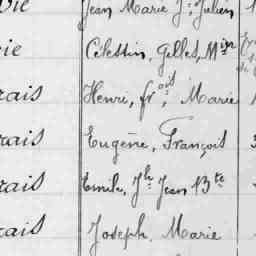 vie Jean Marie Jn Julien
vie Célestin, Gelles, Min
rais Henri, frois, Marie
rais Eugène, François
rais Emile, Jh Jean Bte
rais Joseph, Marie